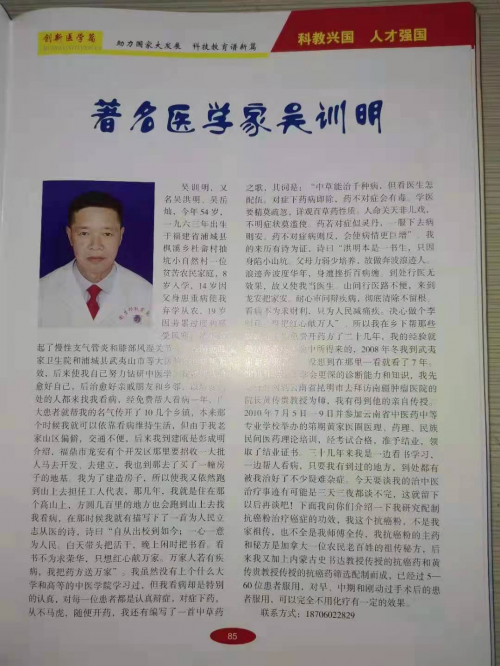 创新医学篇
助力国家大发展 科技教育谱新篇
科教兴国 人才强国
著名医学家吴训明
吴训明，又
名吴洪明、吴岳
灿，今年54岁，
一九六三年出生
于福建省浦城县
枫溪乡社畲村抽
坑小自然村一位
贫苦农民家庭，8
岁入学，14岁因
父身患重病使我
弃学从农，19岁
因劳累过度而感
受风寒
起了慢性支气管炎和膝部风湿关节
家卫生院和浦城县武夷山市等大医
效，后来使我自己努力钻研中医学
愈好自己，后治愈好亲戚朋友和乡邻，以
处的人都来找我看病，经免费帮人看病一年，广
大患者就帮我的名气传开了10几个乡镇，本来那
个时候我就可以依靠看病维持生活，但由于我老
家山区偏僻，交通不便，后来我到建瓯是彭成明
介绍，福鼎市龙安有个开发区那里要招收一大批
人马去开发、去建立，我也到那去了买了一幢房
子的地基。我为了建造房子，所以使我又依然跑
到山上去担任工人代表，那几年，我就是住在那
个高山上，方圆几百里的地方也会跑到山上去找
我看病，在那时候我就有描写下了一首为人民立
志从医的诗，诗曰“自从出校到如今；一心一意
为人民。白天带头把活干，晚上闲时把书看。看
书不为求荣华，只想扛心献万家。万家人若有疾
病，我把药方送万家”。我虽然没有上个什么大
学和高等的中医学院学习过，但我看病却是特别
的认真，对每一位患者都是认真辩症，对症下药，
从不马虎，随便开药，我还有编写了一首中草药
之歌，其词是：“中草能治千种病，但看医生怎
配伍。对症下药病即除，药不对症会有毒。学医
要精莫疏忽，详观百草药性质。人命关天非儿戏，
不明症状莫滥使。药若对症似灵丹，一服下去病
则安。药不对症病则反，会使病情更以增”。我
的来历有诗为证，诗曰“洪明本是一书生，只因
身陷小山坑。父母力弱少培养，故做奔波浪迹人。
浪迹奔波度华年，身遭挫折百病缠。到处行医无
效果，故又使我当医生。山间行医路不便，来到
龙安把家安。耐心审问辩疾病，彻底清除不留根。
看病不为求财利，只为人民减痛疾。决心做个李
时珍，誓把红心献万人”。所以我在乡下帮那些
费开药方了二十几年，我的经验就
中所得来的，2008年冬我到武夷
没想到在那里一看就看了7年。
会更深的诊断能力和知识，我先
云南省昆明市去拜访南疆肿瘤医院的
院长黄传贵教授为师，我有得到他的亲自传授。
2010年7月5日—9日并参加云南省中医药中等
专业学校举办的第期黄家医圈医理、药理、民族
民间医药理论培训，经考试合格，准予结业，领
取了结业证书。三十几年来我是一边看书学习，
一边帮人看病，只要有到过的地方，到处都有
被我治好了不少疑难杂症。今天要谈我的治中医
治疗事迹有可能是三天三夜都谈不完，这就留下
以后再谈吧！下面我向你们介绍一下我研究配制
抗癌粉治疗癌症的功效，我这个抗癌粉，不是我
家祖传，也不全是我师傅全传，我抗癌粉的主药
和秘方是加拿大一位农民老百姓的祖传秘方，后
来我又加上内蒙古史书达教授传授的抗癌药和黄
传贵教授传授的抗癌药筛选配制而成，已经过5—
60位患者服用，对早、中期和刚动过手术后的患
者服用，可以完全不用化疗有一定的效果。
联系方式：18706022829
85